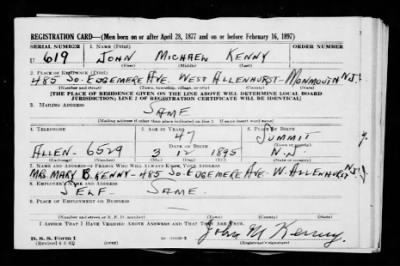 REGISTRATION CARD—(Men born on or after April 28, 1877 and on or before February 16, 1897)
SERIAL NUMBER 1. Name (Print) ORDER NUMBER
U 619 JOHN MICHAEL KENNY
2. Place of Residence (Print)
485 SO. EDGEMERE AVE. WEST ALLENHURST-MONMOUTH N.J.
(Number and street) (Town, township, village, or city) (County) (State)
[THE PLACE OF RESIDENCE GIVEN ON THE LINE ABOVE WILL DETERMINE LOCAL BOARD
JURISDICTION; LINE 2 OF REGISTRATION CERTIFICATE WILL BE IDENTICAL]
3. Mailing Address
SAME
(Mailing address if other than place indicated on line 2. If same insert word same)
4. Telephone 5. Age in Years 6. Place of Birth
47 SUMMIT
Date of Birth
ALLEN- 6529 3 12 1895 N.J.
(Exchange) (Number) (Mo.) (Day) (Yr.) (State or country)
7. Name and Address of Person Who Will Always Know Your Address
MRS. MARY B. KENNY-485 SO. EDGEMERE AVE. W. ALLENHURST N.J.
8. Employer's Name and Address
SELF SAME
9. Place of Employment or Business
(Number and street or R. F. D. number) (Town) (County) (State)
I Affirm That I Have Verified Above Answers and That They Are True.
D. S. S. Form 1
John M Kenny
(Registrant's signature)